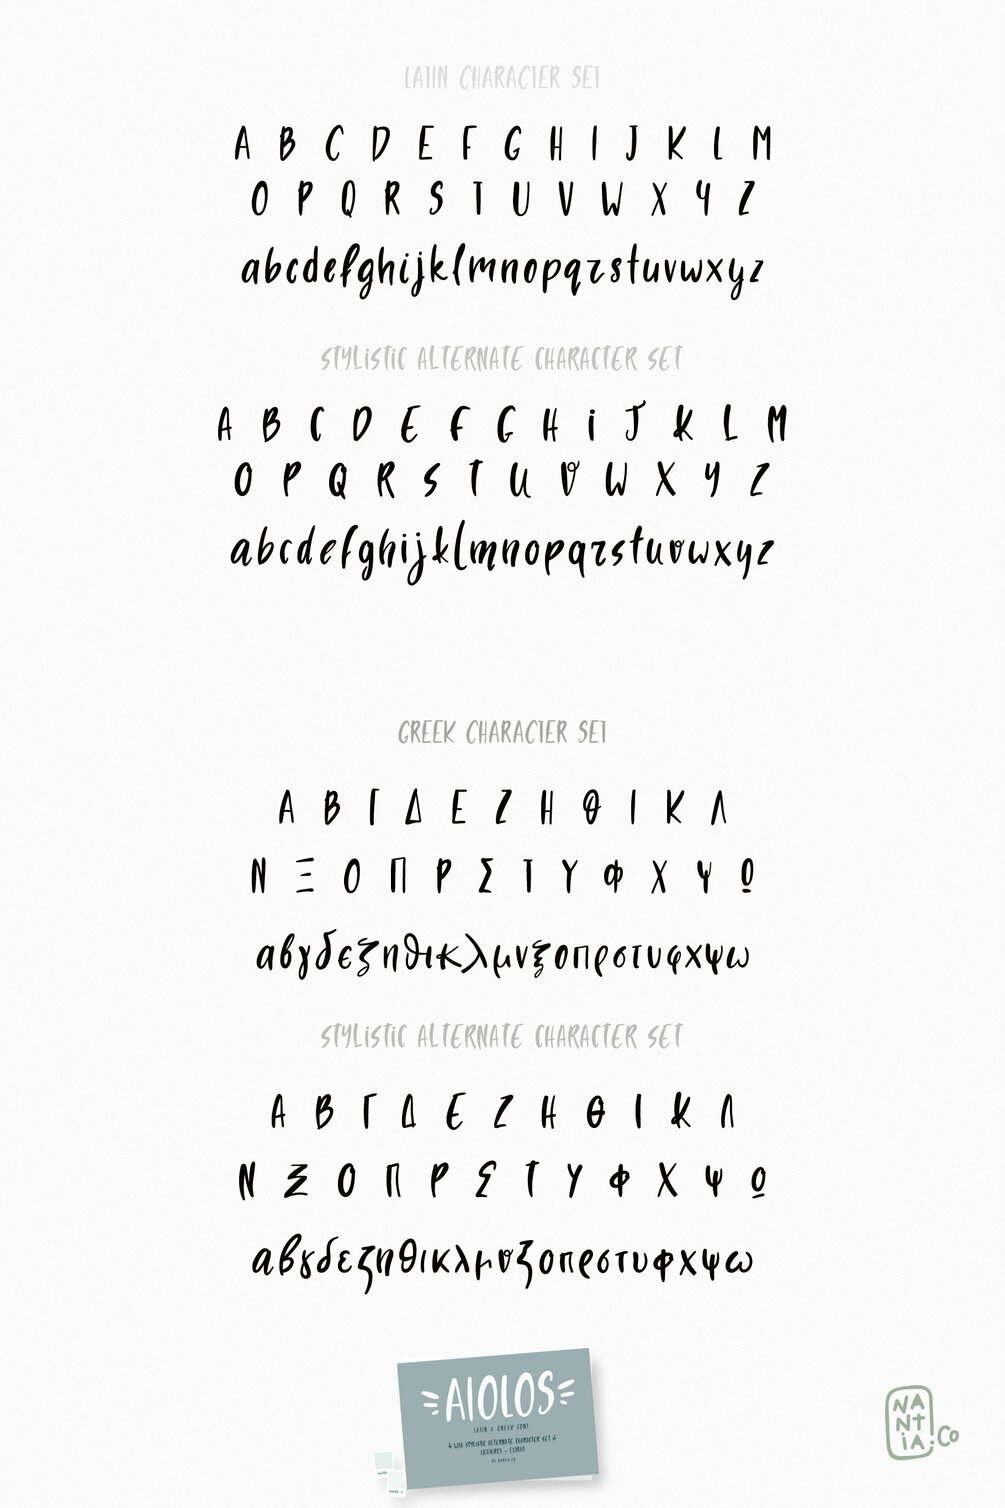 LATIN CHARACTER SET
A B C D E F G H I J K L M
O P Q R S T U V W X Y Z
abcdefghijklmnopqrstuvwxyz
STYLiSTiC ALTERNATE CHARACTER SET
A B C D E F G H i J K L M
O P Q R S T U V W X Y Z
abcdefghijklmnopqrstuvwxyz
GREEK CHARACTER SET
Α Β Γ Δ Ε Ζ Η Θ Ι Κ Λ
Ν Ξ Ο Π Ρ Σ Τ Υ Φ Χ Ψ Ω
αβγδεζηθικλμνξοπρστυφχψω
STYLiSTiC ALTERNATE CHARACTER SET
Α Β Γ Δ Ε Ζ Η Θ Ι Κ Λ
Ν Ξ Ο Π Ρ Σ Τ Υ Φ Χ Ψ Ω
αβγδεζηθικλμνξοπρστυφχψω
AIOLOS
LATIN & GREEK FONT
& WITH STYLISTIC ALTERNATE CHARACTER SET &
LIGATURES - EXTRAS
BY NANTIA.CO
NA
NT
iA.Co